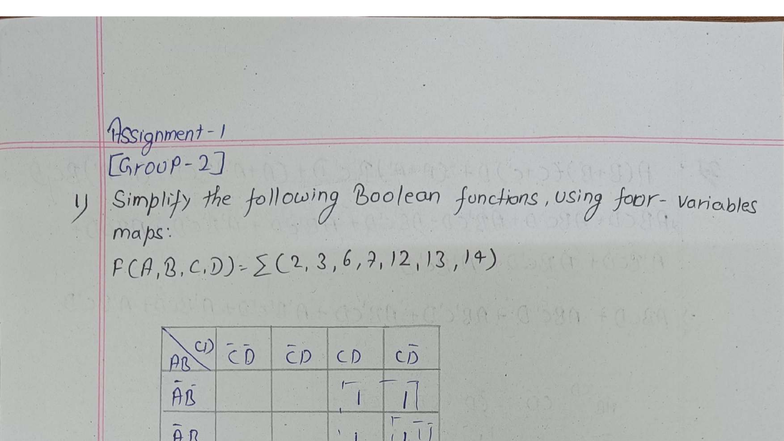 Assignment-1
[Group-2]
1) Simplify the following Boolean functions, using four-variables
maps:
F(A,B,C,D)=Σ(2,3,6,7,12,13,14)
AB CD C̄D̄ C̄D CD CD̄
ĀB̄ 1 1
ĀB 1 1